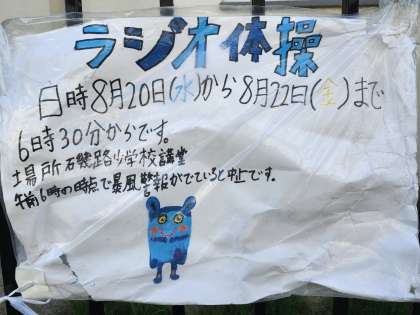 ラジオ体操
日時8月20日(水)から8月22日(金)まで
6時30分からです。
場所 石畿路小学校講堂
午前6時の時点で暴風警報がでていると中止です。